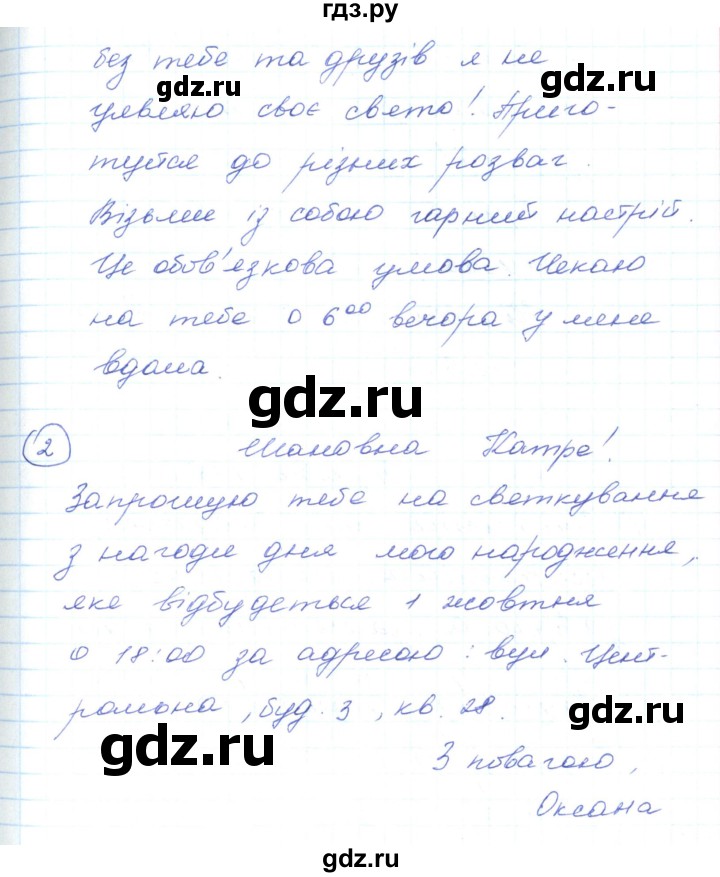 гдз.ру
без тебе та друзів я не
gdz.ru
gdz.ru
уявляю своє свято! Приго-
туйся до різних розваг.
Візьми із собою гарний настрій.
Це обов'язкова умова. Чекаю
на тебе о 6⁰⁰ вечора у мене
вдома.
gdz.ru
2
Шановна Катре!
Запрошую тебе на святкування
gdz.ru
gdz.ru
з нагоди дня мого народження,
яке відбудеться 1 жовтня
о 18:00 за адресою: вул. Цент-
, буд. 3, кв. 28.
gdz.ru
gdz.ru
З повагою,
Оксана
gdz.ru